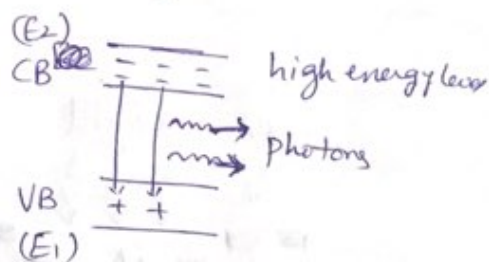 (E2)
CB
high energy level
photons
VB + +
(E1)